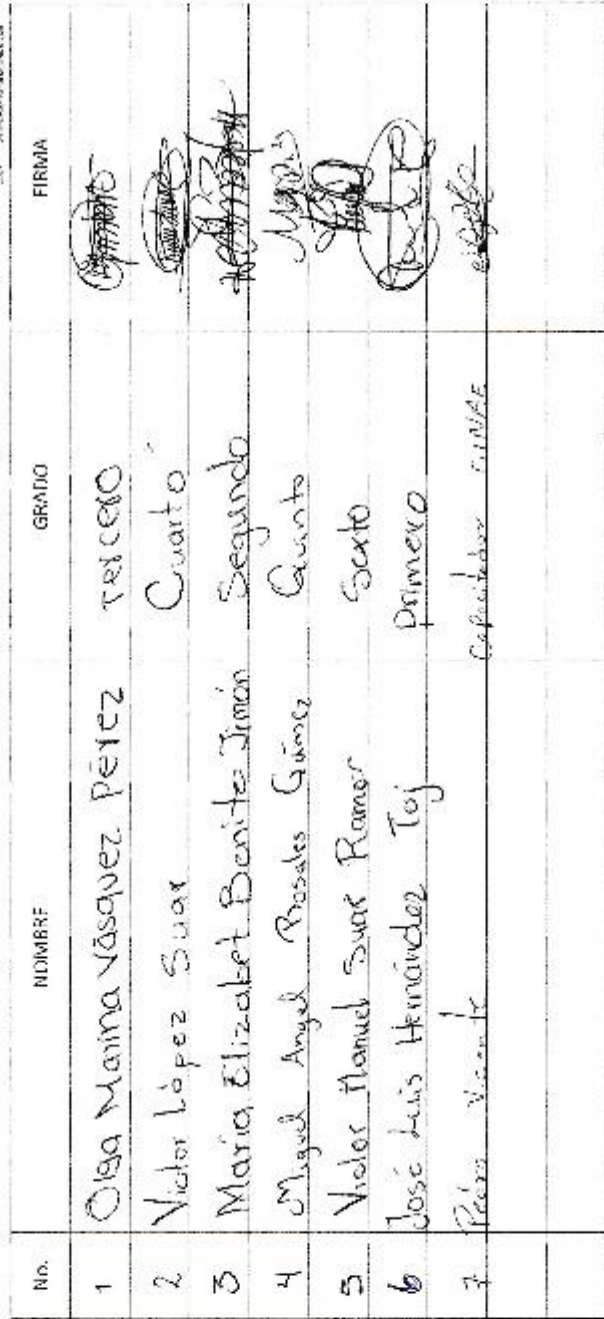 No. NOMBRE GRADO FIRMA
1 Olga Marina Vásquez Pérez Tercero
2 Victor López Suar Cuarto
3 María Elizabet Benito Jimón Segundo
4 Miguel Angel Rosales Gámez Quinto
5 Victor Manuel Suar Ramos Sexto
6 José Luis Hernández Toj primero
7 Pedro Vicente Capacitador